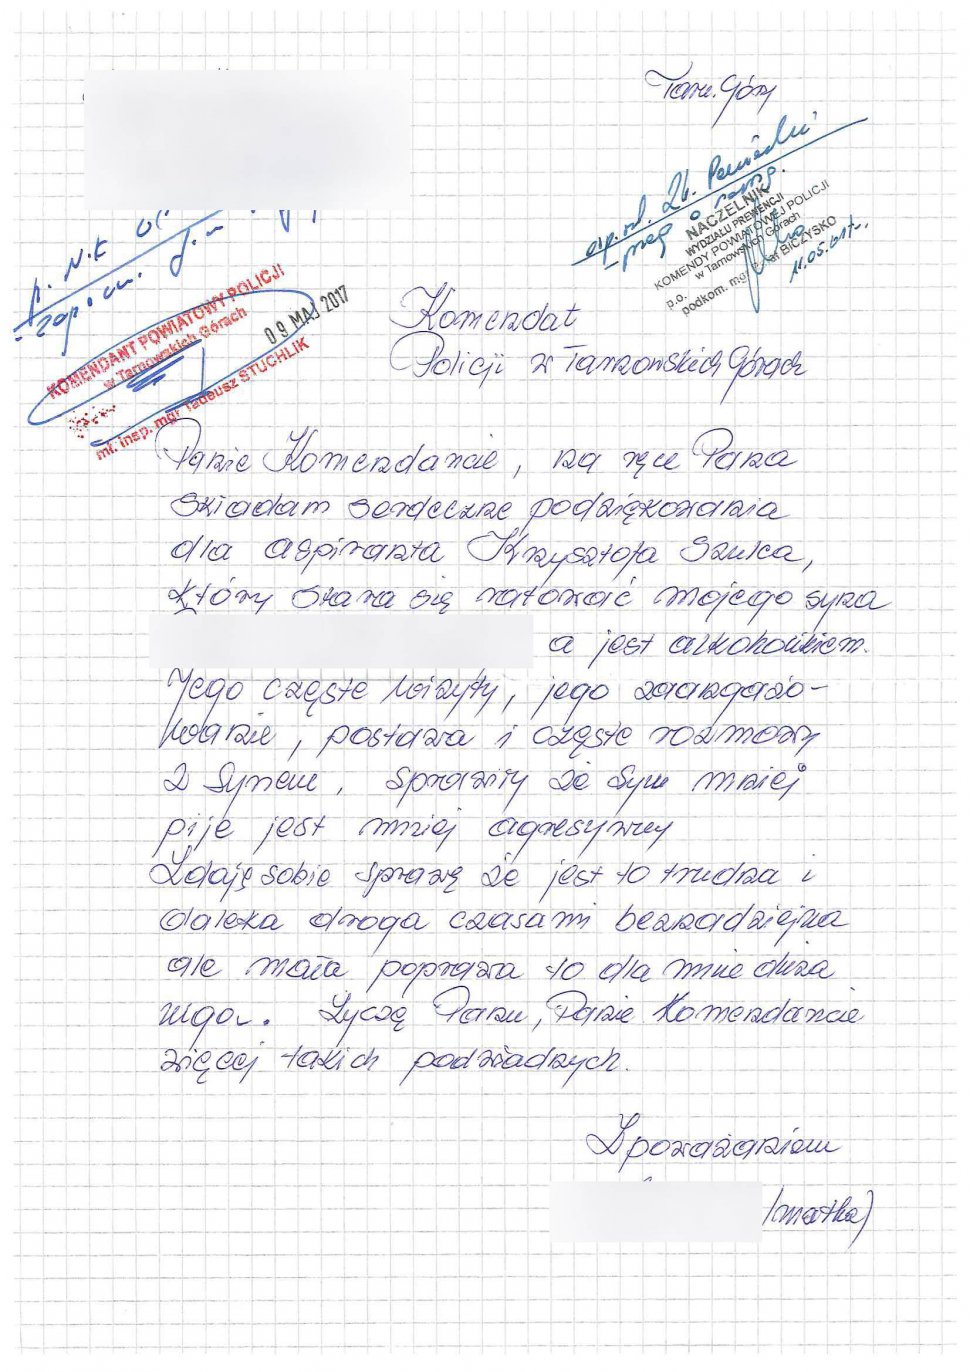 Tarn. Góry
NACZELNIK
WYDZIAŁU PREWENCJI
KOMENDY POWIATOWEJ POLICJI
w Tarnowskich Górach
p.o.
podkom. mgr BICZYSKO
11.05.017r.
KOMENDANT POWIATOWY POLICJI
w Tarnowskich Górach
09 MAJ 2017
mł. insp. mgr Tadeusz STUCHLIK
Komendat
Policji w Tarnowskich Górach
Panie Komendancie, na ręce Pana
składam serdeczne podziękowania
dla aspiranta Krzysztofa Szulca,
który stara się ratować mojego syna
a jest alkoholikiem.
Jego częste wizyty, jego zaangażo-
wanie, postawa i częste rozmowy
z synem, sprawiły że syn mniej
pije jest mniej agresywny
Zdaję sobie sprawę że jest to trudna i
daleka droga czasami beznadziejna
ale mała poprawa to dla mnie duża
ulga. Życzę Panu, Panie Komendancie
więcej takich podwładnych.
Z poważaniem
/matka/